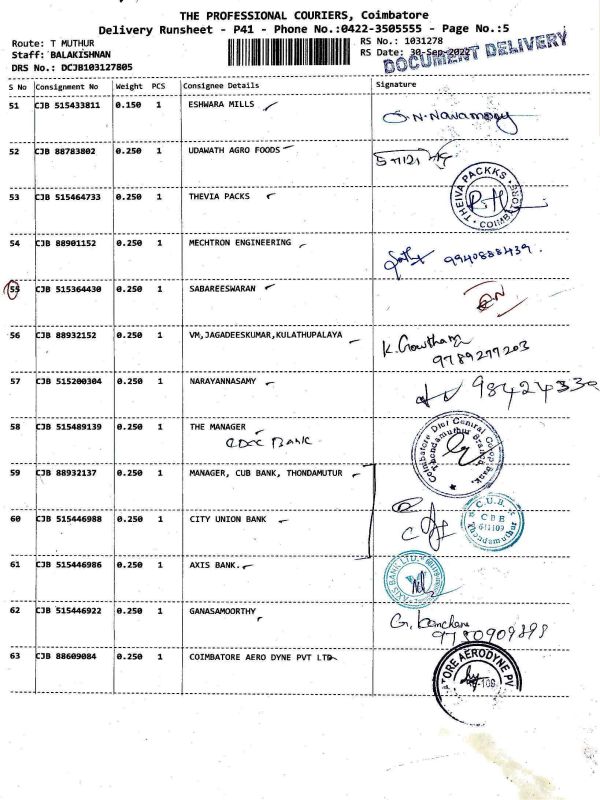 THE PROFESSIONAL COURIERS, Coimbatore
Delivery Runsheet - P41 - Phone No.:0422-3505555 - Page No.:5
Route: T MUTHUR
RS No.: 1031278
Staff: BALAKISHNAN
RS Date: 30-Sep-2022
DOCUMENT DELIVERY
DRS No.: DCJB103127805
S No Consignment No Weight PCS Consignee Details Signature
51 CJB 515433811 0.150 1 ESHWARA MILLS
S.N. Navamoney
52 CJB 88783802 0.250 1 UDAWATH AGRO FOODS
53 CJB 515464733 0.250 1 THEVIA PACKS
THEIVA PACKKS COIMBATORE
54 CJB 88901152 0.250 1 MECHTRON ENGINEERING
9940888439.
55 CJB 515364430 0.250 1 SABAREESWARAN
56 CJB 88932152 0.250 1 VM,JAGADEESKUMAR,KULATHUPALAYA
K. Gowtham
9789277203
57 CJB 515200304 0.250 1 NARAYANNASAMY
98424330
58 CJB 515489139 0.250 1 THE MANAGER
CDCC BANK
Coimbatore Dist Central Coop. Bank. Thondamuthur Branch
59 CJB 88932137 0.250 1 MANAGER, CUB BANK, THONDAMUTUR
60 CJB 515446988 0.250 1 CITY UNION BANK
C.U.B. CBE 641109 Thondamuthur
61 CJB 515446986 0.250 1 AXIS BANK.
AXIS BANK LTD.
62 CJB 515446922 0.250 1 GANASAMOORTHY
G. Kanchana
9780909898
63 CJB 88609084 0.250 1 COIMBATORE AERO DYNE PVT LTD
TORE AERODYNE PV